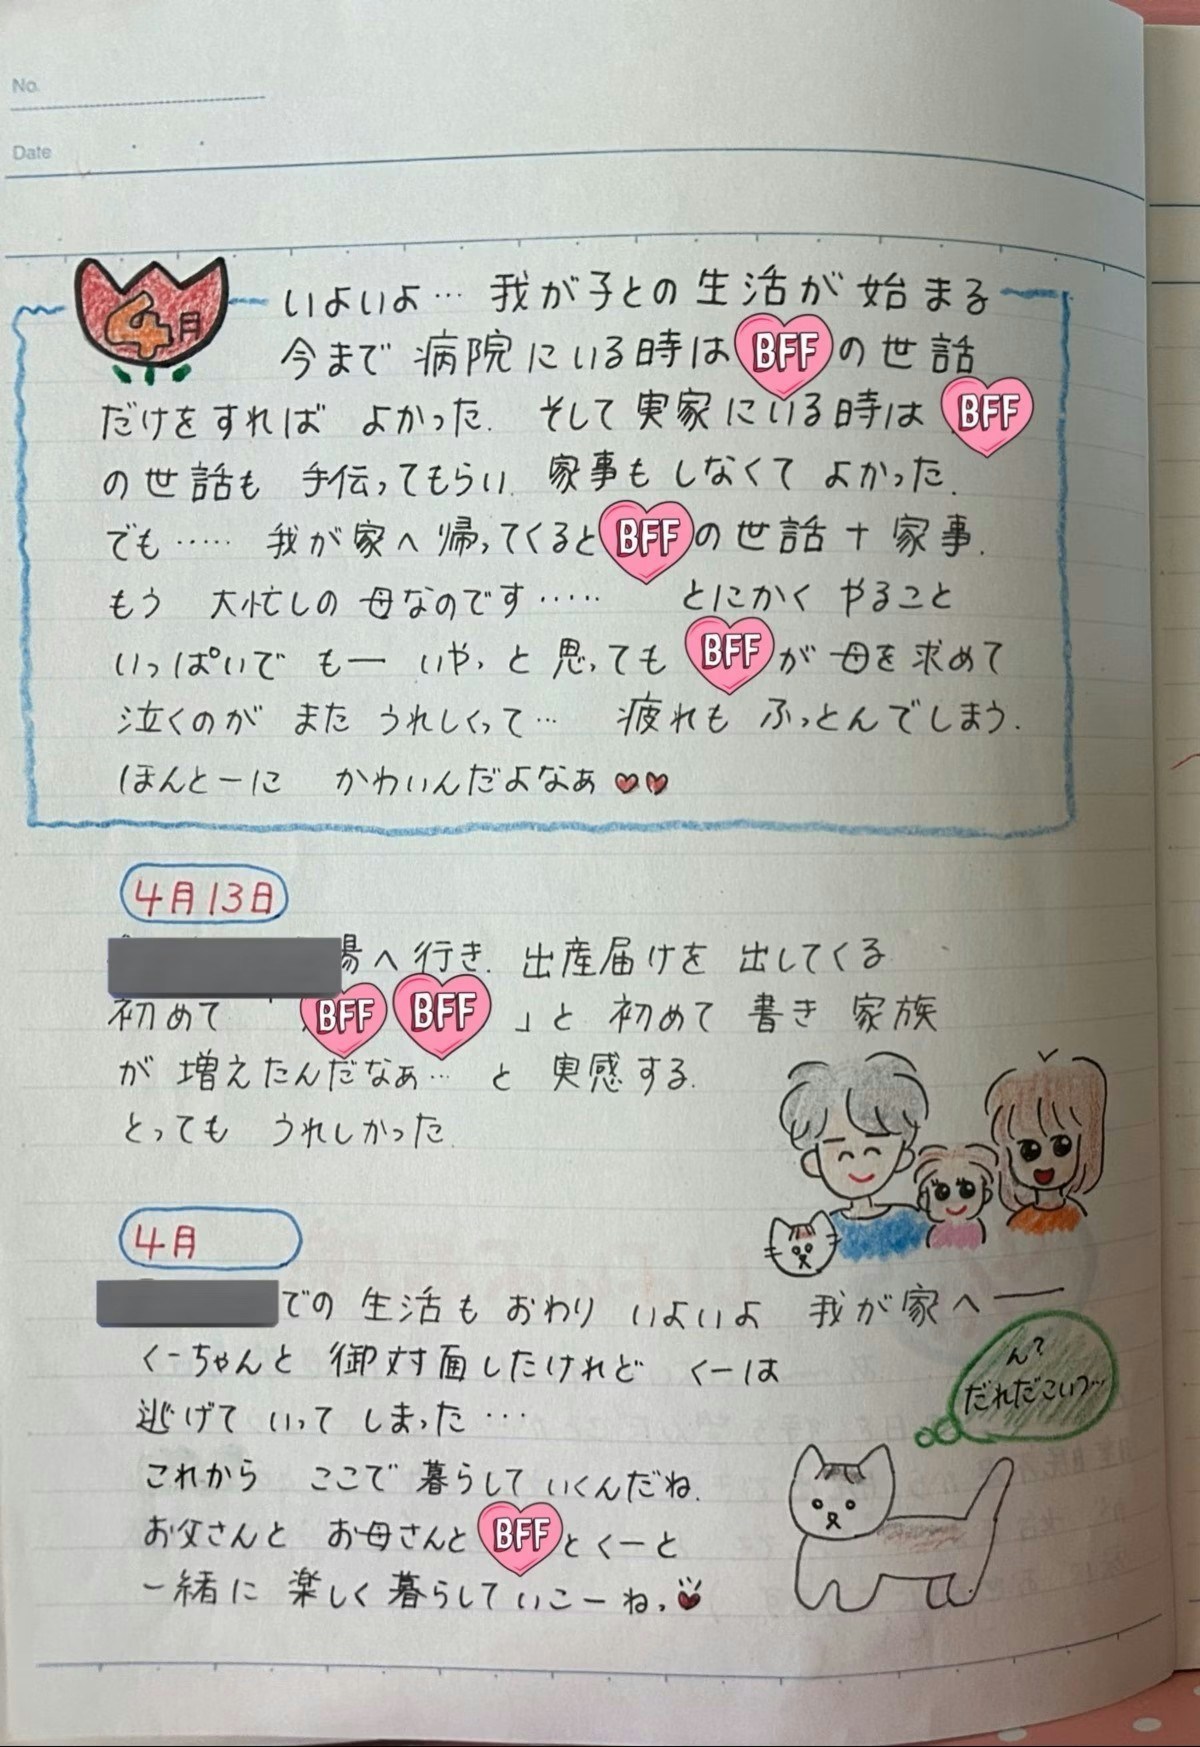 No.
Date
4月
いよいよ… 我が子との生活が始まる
今まで 病院にいる時は BFF の世話
だけをすれば よかった. そして 実家にいる時は BFF
の世話も 手伝ってもらい. 家事も しなくて よかった.
でも…… 我が家へ帰ってくると BFF の世話+家事.
もう 大忙しの母なのです…… とにかく やること
いっぱいで もー いやっと思っても BFF が母を求めて
泣くのが また うれしくって… 疲れも ふっとんでしまう.
ほんとーに かわいんだよなぁ
4月13日
場へ行き. 出産届けを 出してくる
初めて 「 BFF BFF 」と 初めて 書き 家族
が 増えたんだなぁ… と 実感する.
とっても うれしかった.
4月
での 生活も おわり いよいよ 我が家へ――
くーちゃんと 御対面したけれど くーは
逃げて いって しまった…
ん?
だれだこいつ…
これから ここで 暮らして いくんだね.
お父さんと お母さんと BFF と くーと
一緒に 楽しく 暮らして いこーね.